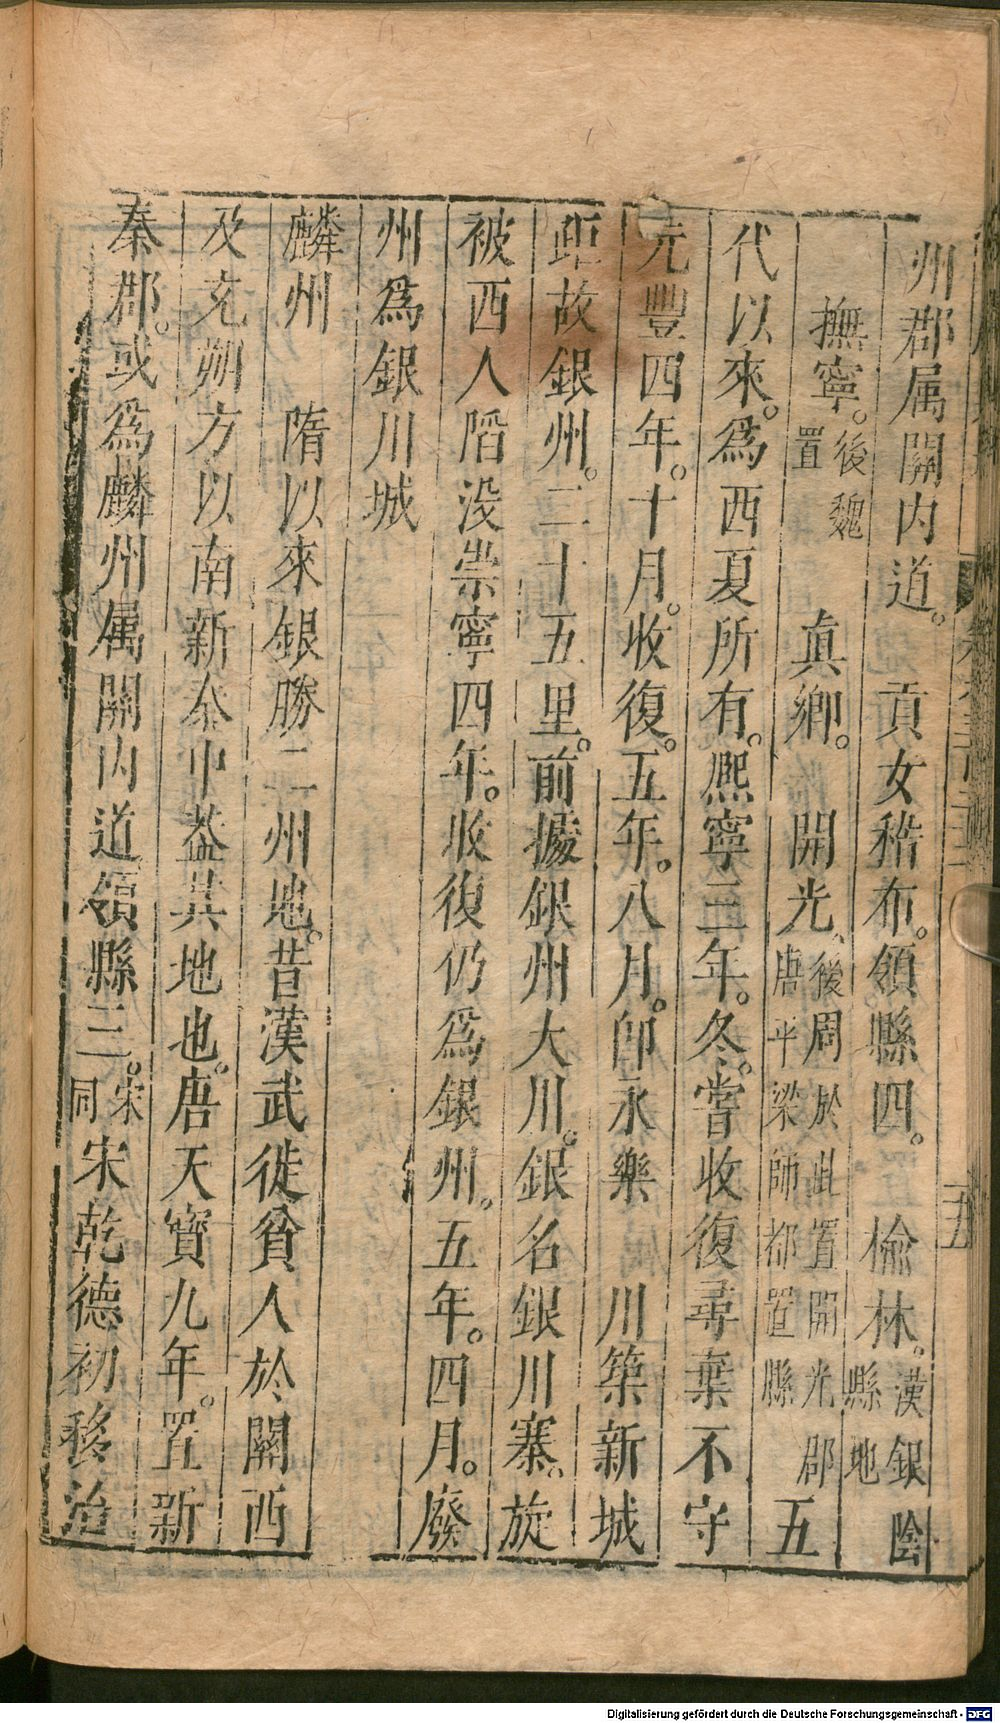 州郡属關内道。貢女稽布。領縣四。榆林。漢銀陰縣地
撫寧。後魏置 真鄉。開光、後周於此置開光郡唐平梁師都置縣 五
代以來。為西夏所有。熙寧三年。冬。嘗收復尋棄不守
元豐四年。十月。收復。五年。八月。即永樂川築新城
距故銀州。二十五里。前據銀州大川。銀名銀川寨。旋
被西人陷没崇寧四年。收復仍為銀州。五年。四月。廢
州為銀川城
麟州 隋以來銀勝二州地。昔漢武徙貧人於關西
及充朔方以南新秦中葢其地也。唐天寶九年。置新
秦郡。或為麟州属關内道領縣三。宋同宋乾德初移治
五
Digitalisierung gefördert durch die Deutsche Forschungsgemeinschaft - DFG